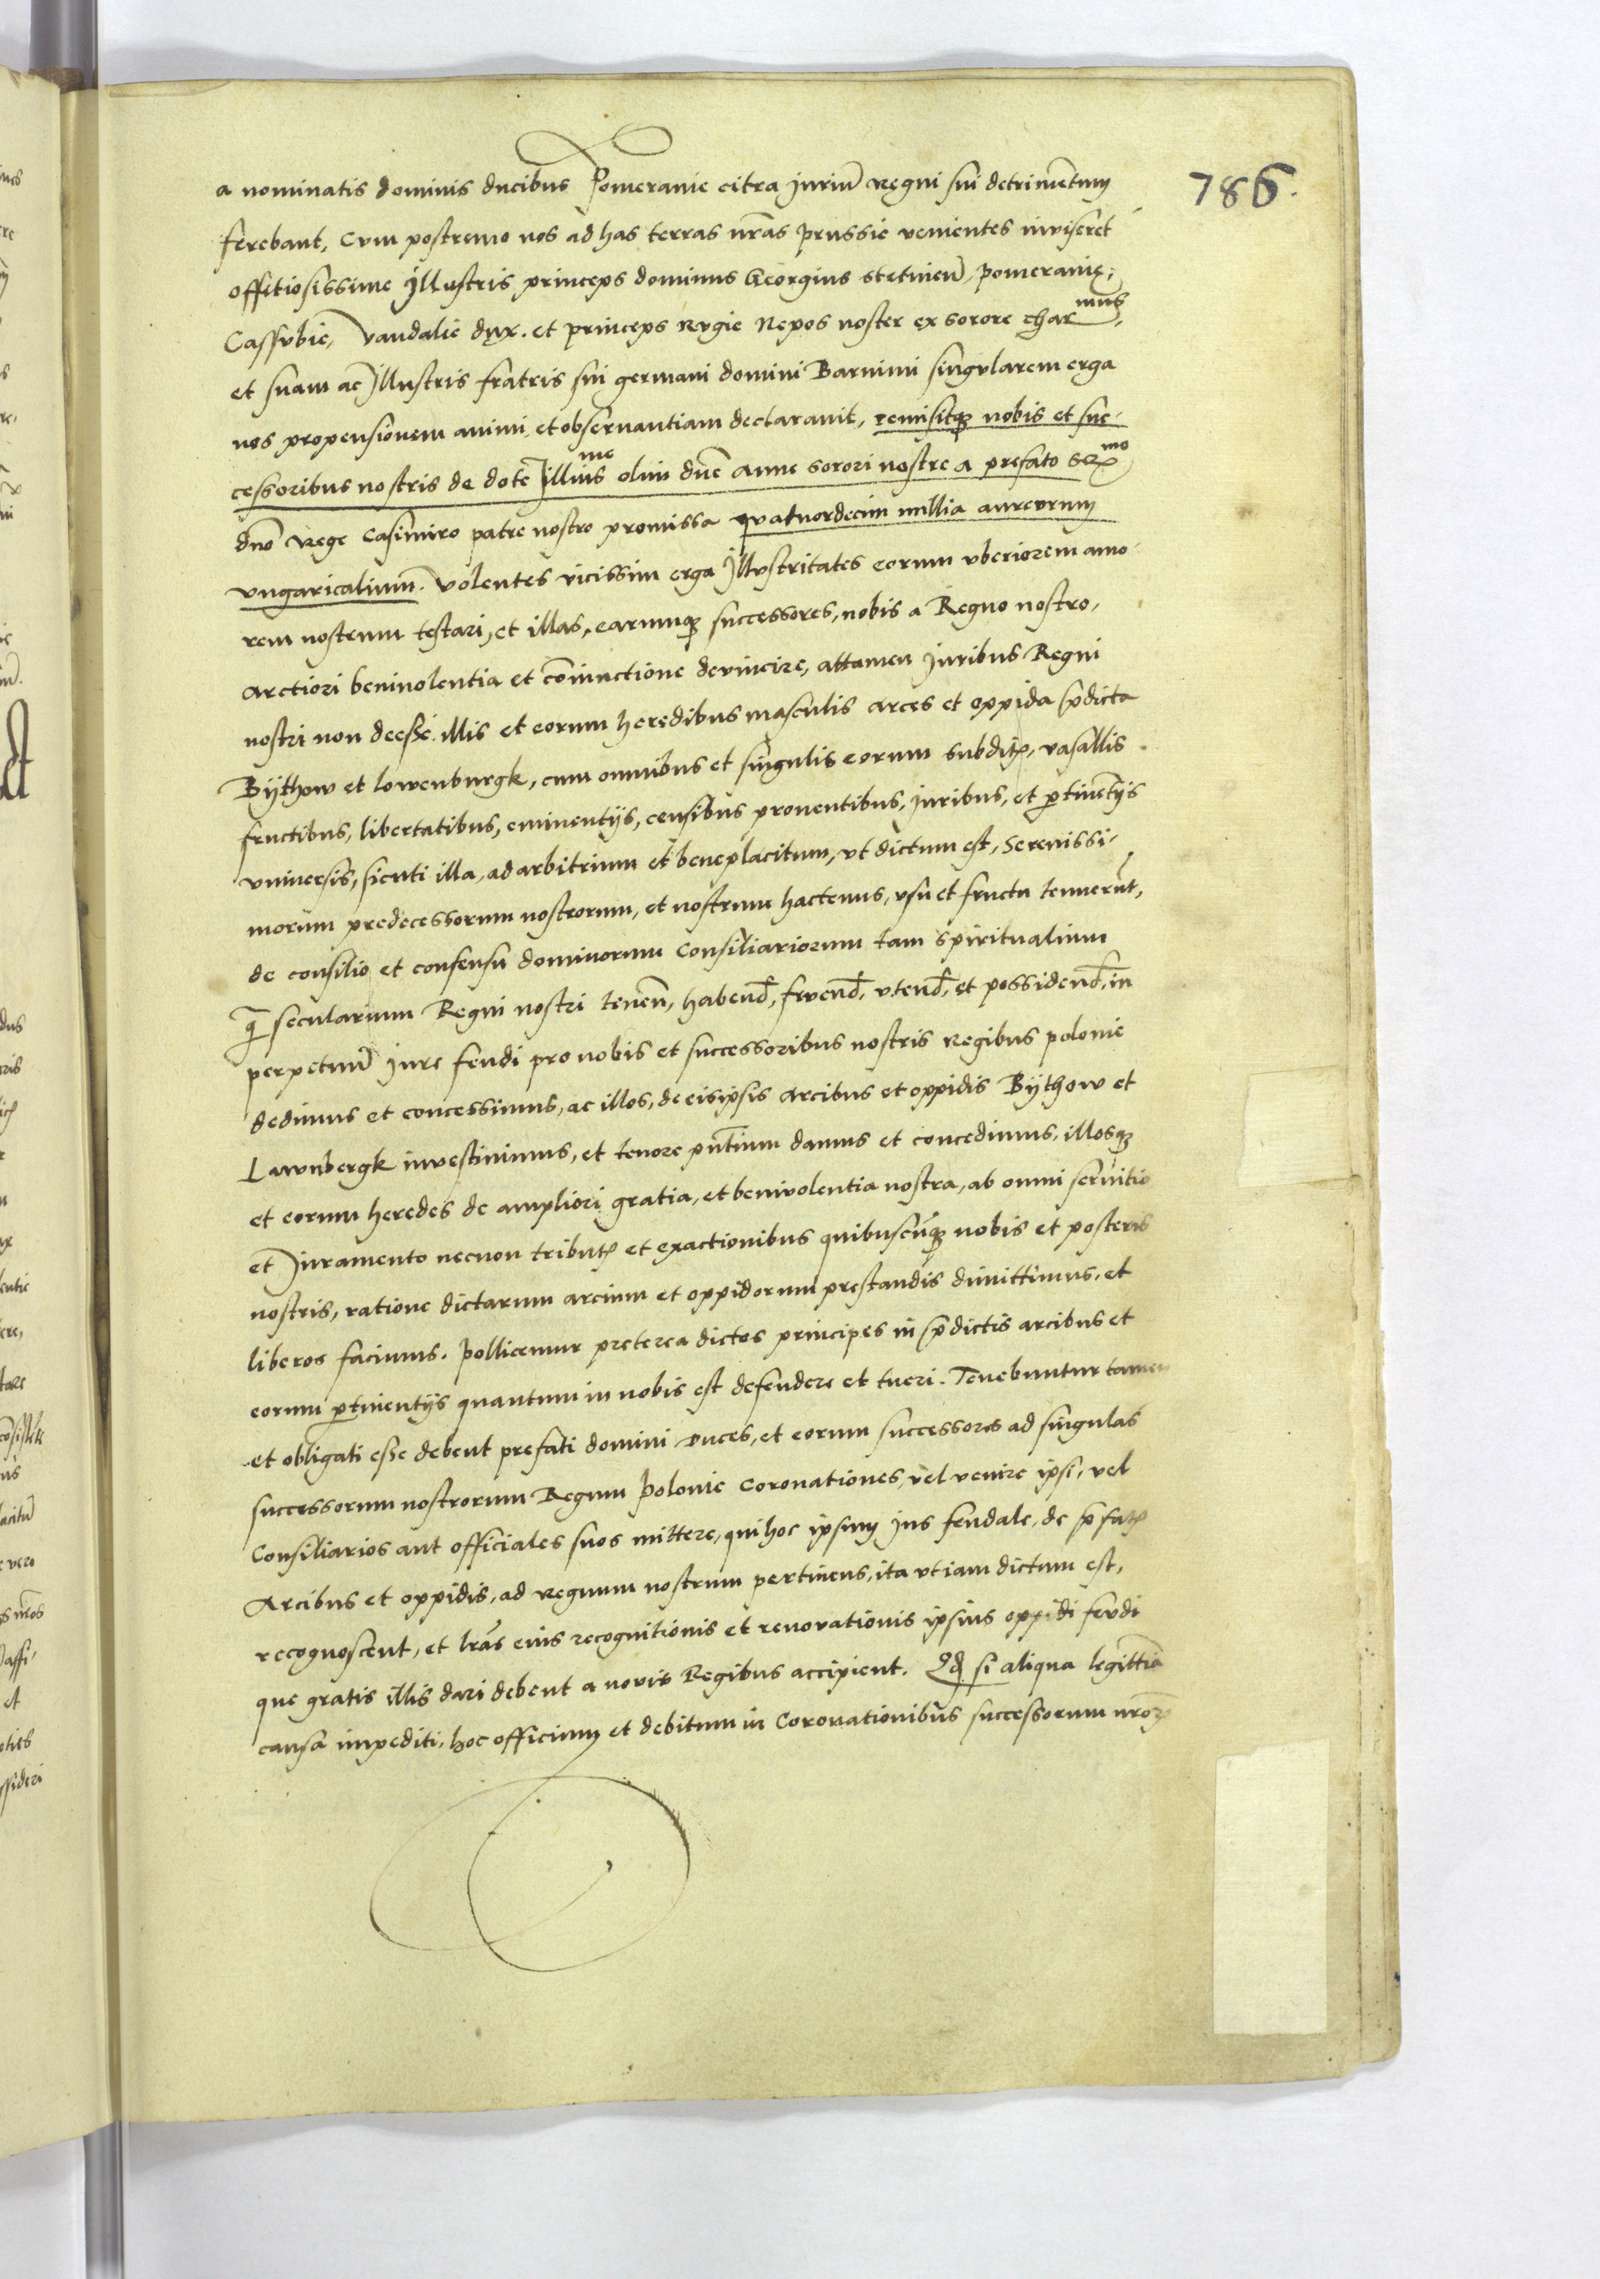 786.
a nominatis dominis ducibus Pomeranie citra juriū Regni sui detrimētum
ferebant, Cum postremo nos ad has terras nrās prussie venientes inviseret
offitiosissime Jllustris princeps dominus Georgius Stetinen̄, pomeranię,
Cassubie, Vandalie dux. et princeps Rugie Nepos noster ex sorore char^mus,
et suam ac Jllustris fratris sui germani domini Barnimi singularem erga
nos propensionem animi, et observantiam declaravit, remisitq nobis et suc-
cessoribus nostris de dote Jllius^me olim dn̄e Anne sorori nostre a prefato Ser^mo
dn̄o Rege Casimiro patre nostro promissa quatuordecim millia aureorum
ungaricalium. Volentes vicissim erga Jllustritates eorum uberiorem amo-
rem nostrum testari, et illas, earumq successores, nobis a Regno nostro,
arctiori benivolentia et cōiunctione devincire, attamen juribus Regni
nostri non deesse. illis et eorum heredibus masculis arces et oppida p̄dicta
Bÿthow et lowenburgk, cum omnibus et singulis eorum subditꝭ, vasallis
fructibus, libertatibus, eminentÿs, censibus proventibus, juribus, et ꝑtinētÿs
universis, sicuti illa, ad arbitrium et beneplacitum, ut dictum est, Serenissi-
morum predecessorum nostrorum, et nostrum hactenus, usu et fructu tenuerūt,
de consilio et consensu dominorum Consiliariorum tam spiritualium
q̄ secularium Regni nostri tenen̄, habend̄, fruend̄, utend̄, et possidend̄, in
perpetuū Jure feudi pro nobis et successoribus nostris Regibus polonie
dedimus et concessimus, ac illos, de eisipsis arcibus et oppidis Bÿthow et
Lawnbergk investivimus, et tenore pn̄tium damus et concedimus, illosq
et eorum heredes de ampliori gratia, et benivolentia nostra, ab omni servitio
et Juramento necnon tributꝭ et exactionibus quibuscūq nobis et posteris
nostris, ratione dictarum arcium et oppidorum prestandis dimittimus, et
liberos facimus. pollicemur preterea dictos principes in p̄dictis arcibus et
eorum ꝑtinentÿs quantum in nobis est defendere et tueri. Tenebuntur tamen
et obligati esse debent prefati domini duces, et eorum successores ad singulas
successorum nostrorum Regum Polonie Coronationes, vel venire ipsi, vel
Consiliarios aut officiales suos mittere, qui hoc ipsum jus feudale, de p̄fatꝭ
Arcibus et oppidis, ad Regnum nostrum pertinens, ita ut iam dictum est,
recognoscent, et lrās eius recognitionis et renovationis ipsius oppidi feudi
que gratis illis dari debent a novis Regibus accipient. Qd si aliqua legittīa
causa impediti, hoc officium et debitum in Coronationibus successorum nrōꝝ